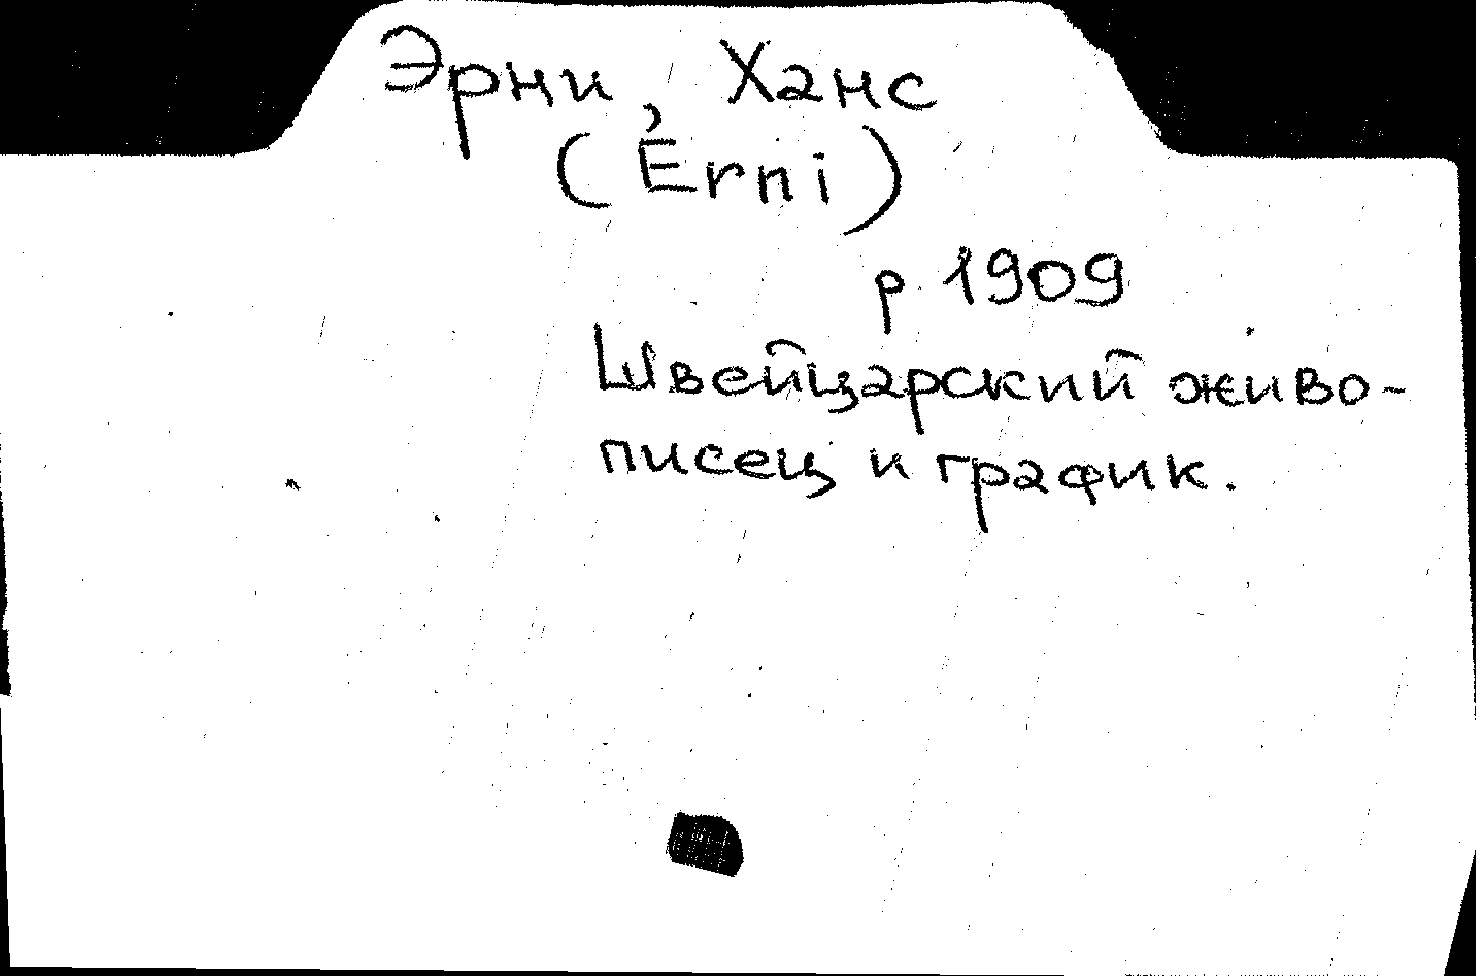 Эрни, Ханс
(Érni)
р 1909
Швейцарский живо-
писец и график.